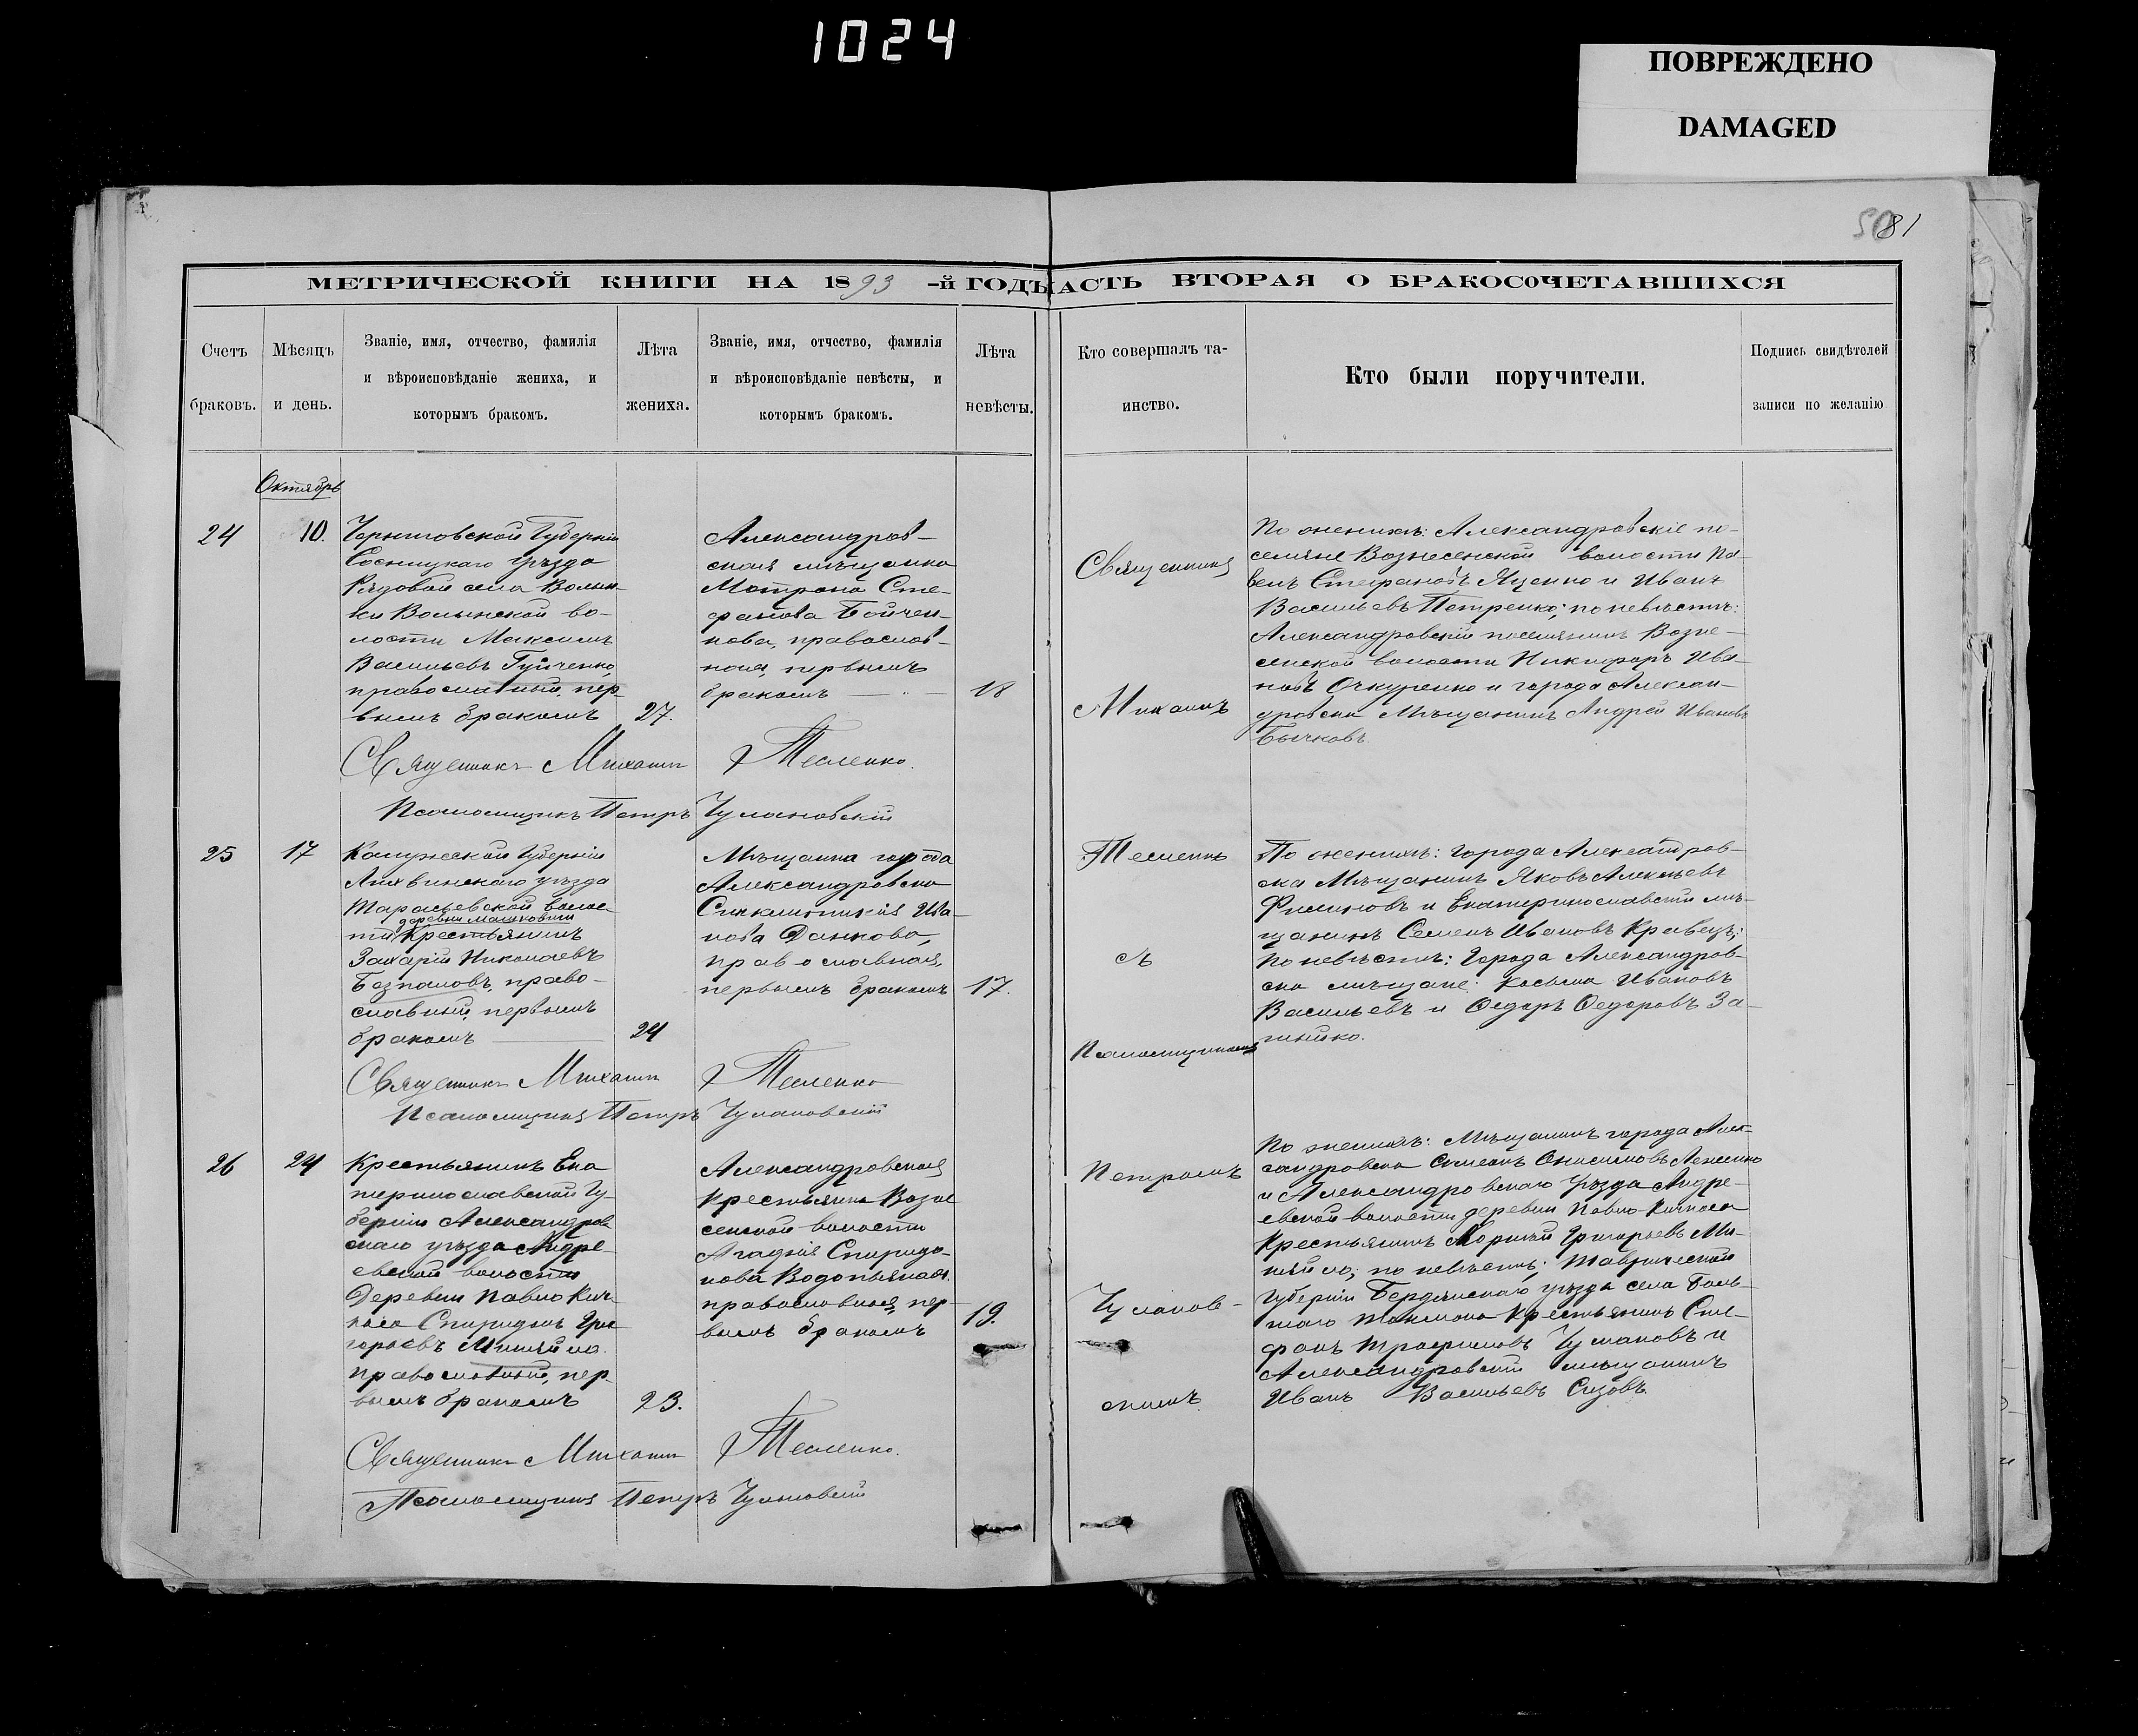 1024
ПОВРЕЖДЕНО
DAMAGED
81
МЕТРИЧЕСКОЙ КНИГИ НА 1893-й ГОДЪ
АСТЬ ВТОРАЯ О БРАКОСОЧЕТАВШИХСЯ
Счетъ браковъ.
Мѣсяцъ и день.
Званіе, имя, отчество, фамилія
и вѣроисповѣданіе жениха, и
которымъ бракомъ.
Лѣта жениха.
Званіе, имя, отчество, фамилія
и вѣроисповѣданіе невѣсты, и
которымъ бракомъ.
Лѣта невѣсты.
Кто совершалъ та-
инство.
Кто были поручители.
Подпись свидѣтелей
записи по желанію
Октябрь
24
10.
Черниговской Губерніи
Сосницкаго уѣзда
Рядовой села Волын-
ки Волынской во-
лости Максимъ
Васильевъ Гуйченко,
православный, пер-
вымъ бракомъ
27.
Александров-
ская мѣщанка
Матрона Сте-
фанова Бойчен-
кова, православ-
ная, первымъ
бракомъ
18
Священник
Михаилъ
По женихѣ: Александровскіе по-
селяне Вознесенской волости Па-
велъ Стефановъ Яценко и Иванъ
Васильевъ Петренко; по невѣстѣ:
Александровскій поселянинъ Возне-
сенской волости Никифоръ Ива-
новъ Очкуренко и города Алексан-
дровска Мѣщанинъ Андрей Ивановъ
Бычковъ.
Священникъ Михаилъ Тесленко.
Псаломщикъ Петръ Чулановскій
25
17
Калужской Губерніи
Лихвинскаго уѣзда
Тарасьевской волос-
деревни Машковичи
ти Крестьянинъ
Захарій Николаевъ
Безпаловъ, право-
славный, первымъ
бракомъ
24
Мѣщанка города
Александровска
Синклитикія Ива-
нова Данкова,
православная,
первымъ бракомъ
17.
Тесленко
съ
Псаломщикомъ
По женихѣ: города Александров-
ска Мѣщанинъ Яковъ Алексѣевъ
Филиповъ и Екатеринославскій мѣ-
щанинъ Семенъ Ивановъ Кравецъ;
по невѣстѣ: Города Александров-
ска мѣщане: Косьма Ивановъ
Васильевъ и Ѳедоръ Ѳедоровъ За-
Священникъ Михаилъ Тесленко
Псаломщикъ Петръ Чулановскій
26
24
Крестьянинъ Ека
теринославской Гу-
берніи Александров
скаго уѣзда Андре-
евской волости
Деревни Павло Кич-
каса Спиридонъ Гри
горьевъ
православный, пер-
вымъ бракомъ
23.
Александровская
крестьянка Возне
сенской волости
Агафія Спиридо-
нова Водопьянова
православная, пер-
вымъ бракомъ
19.
Петромъ
Чуланов-
скимъ
По женихѣ: Мѣщанинъ города Алек-
сандровска Симеонъ Онисимовъ
и Александровскаго уѣзда Андре-
евской волости деревни Павло-Кичкаса
Крестьянинъ Григорьевъ
по невѣстѣ: Таврической
Губерніи Бердянскаго уѣзда села Боль-
шаго Токмака Крестьянинъ Сте-
фанъ Трофимовъ Чумаковъ и
Александровскій мѣщанинъ
Иванъ Васильевъ Сизовъ.
Священникъ Михаилъ Тесленко.
Псаломщикъ Петръ Чулановскій